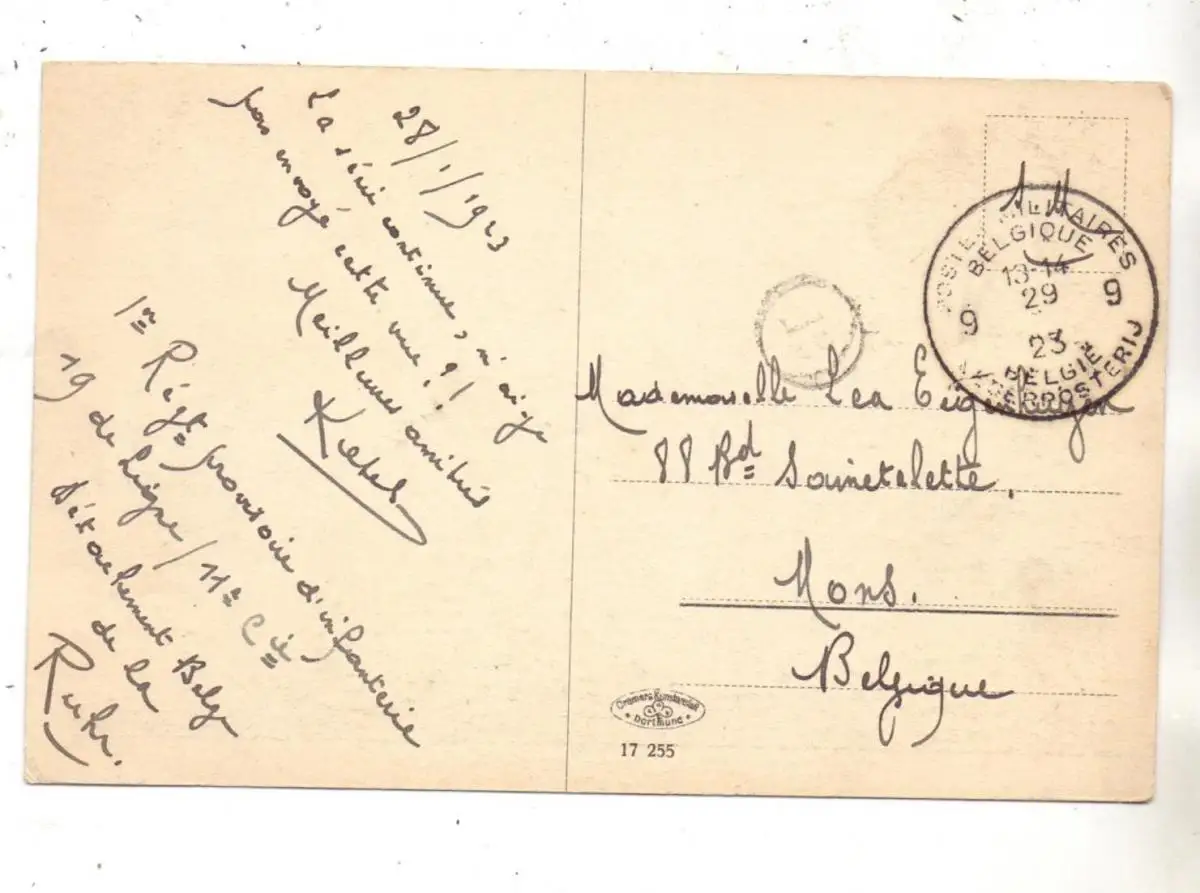 28/1/1923
La série continue, n'ai-je
pas envoyé cette vue?!
Meilleures amitiés
1er Régt provisoire d'infanterie
19 de Ligne / 11e Cie
Détachement Belge
de la
Ruhr.
S.M.
POSTES MILITAIRES
BELGIQUE
13-14
29
23
9 9
BELGIE
LEGERPOSTERIJ
Mademoiselle Lea
88 Bd Sainctelette.
Mons.
Belgique
Cramers Kunstanstalt
Dortmund
17 255